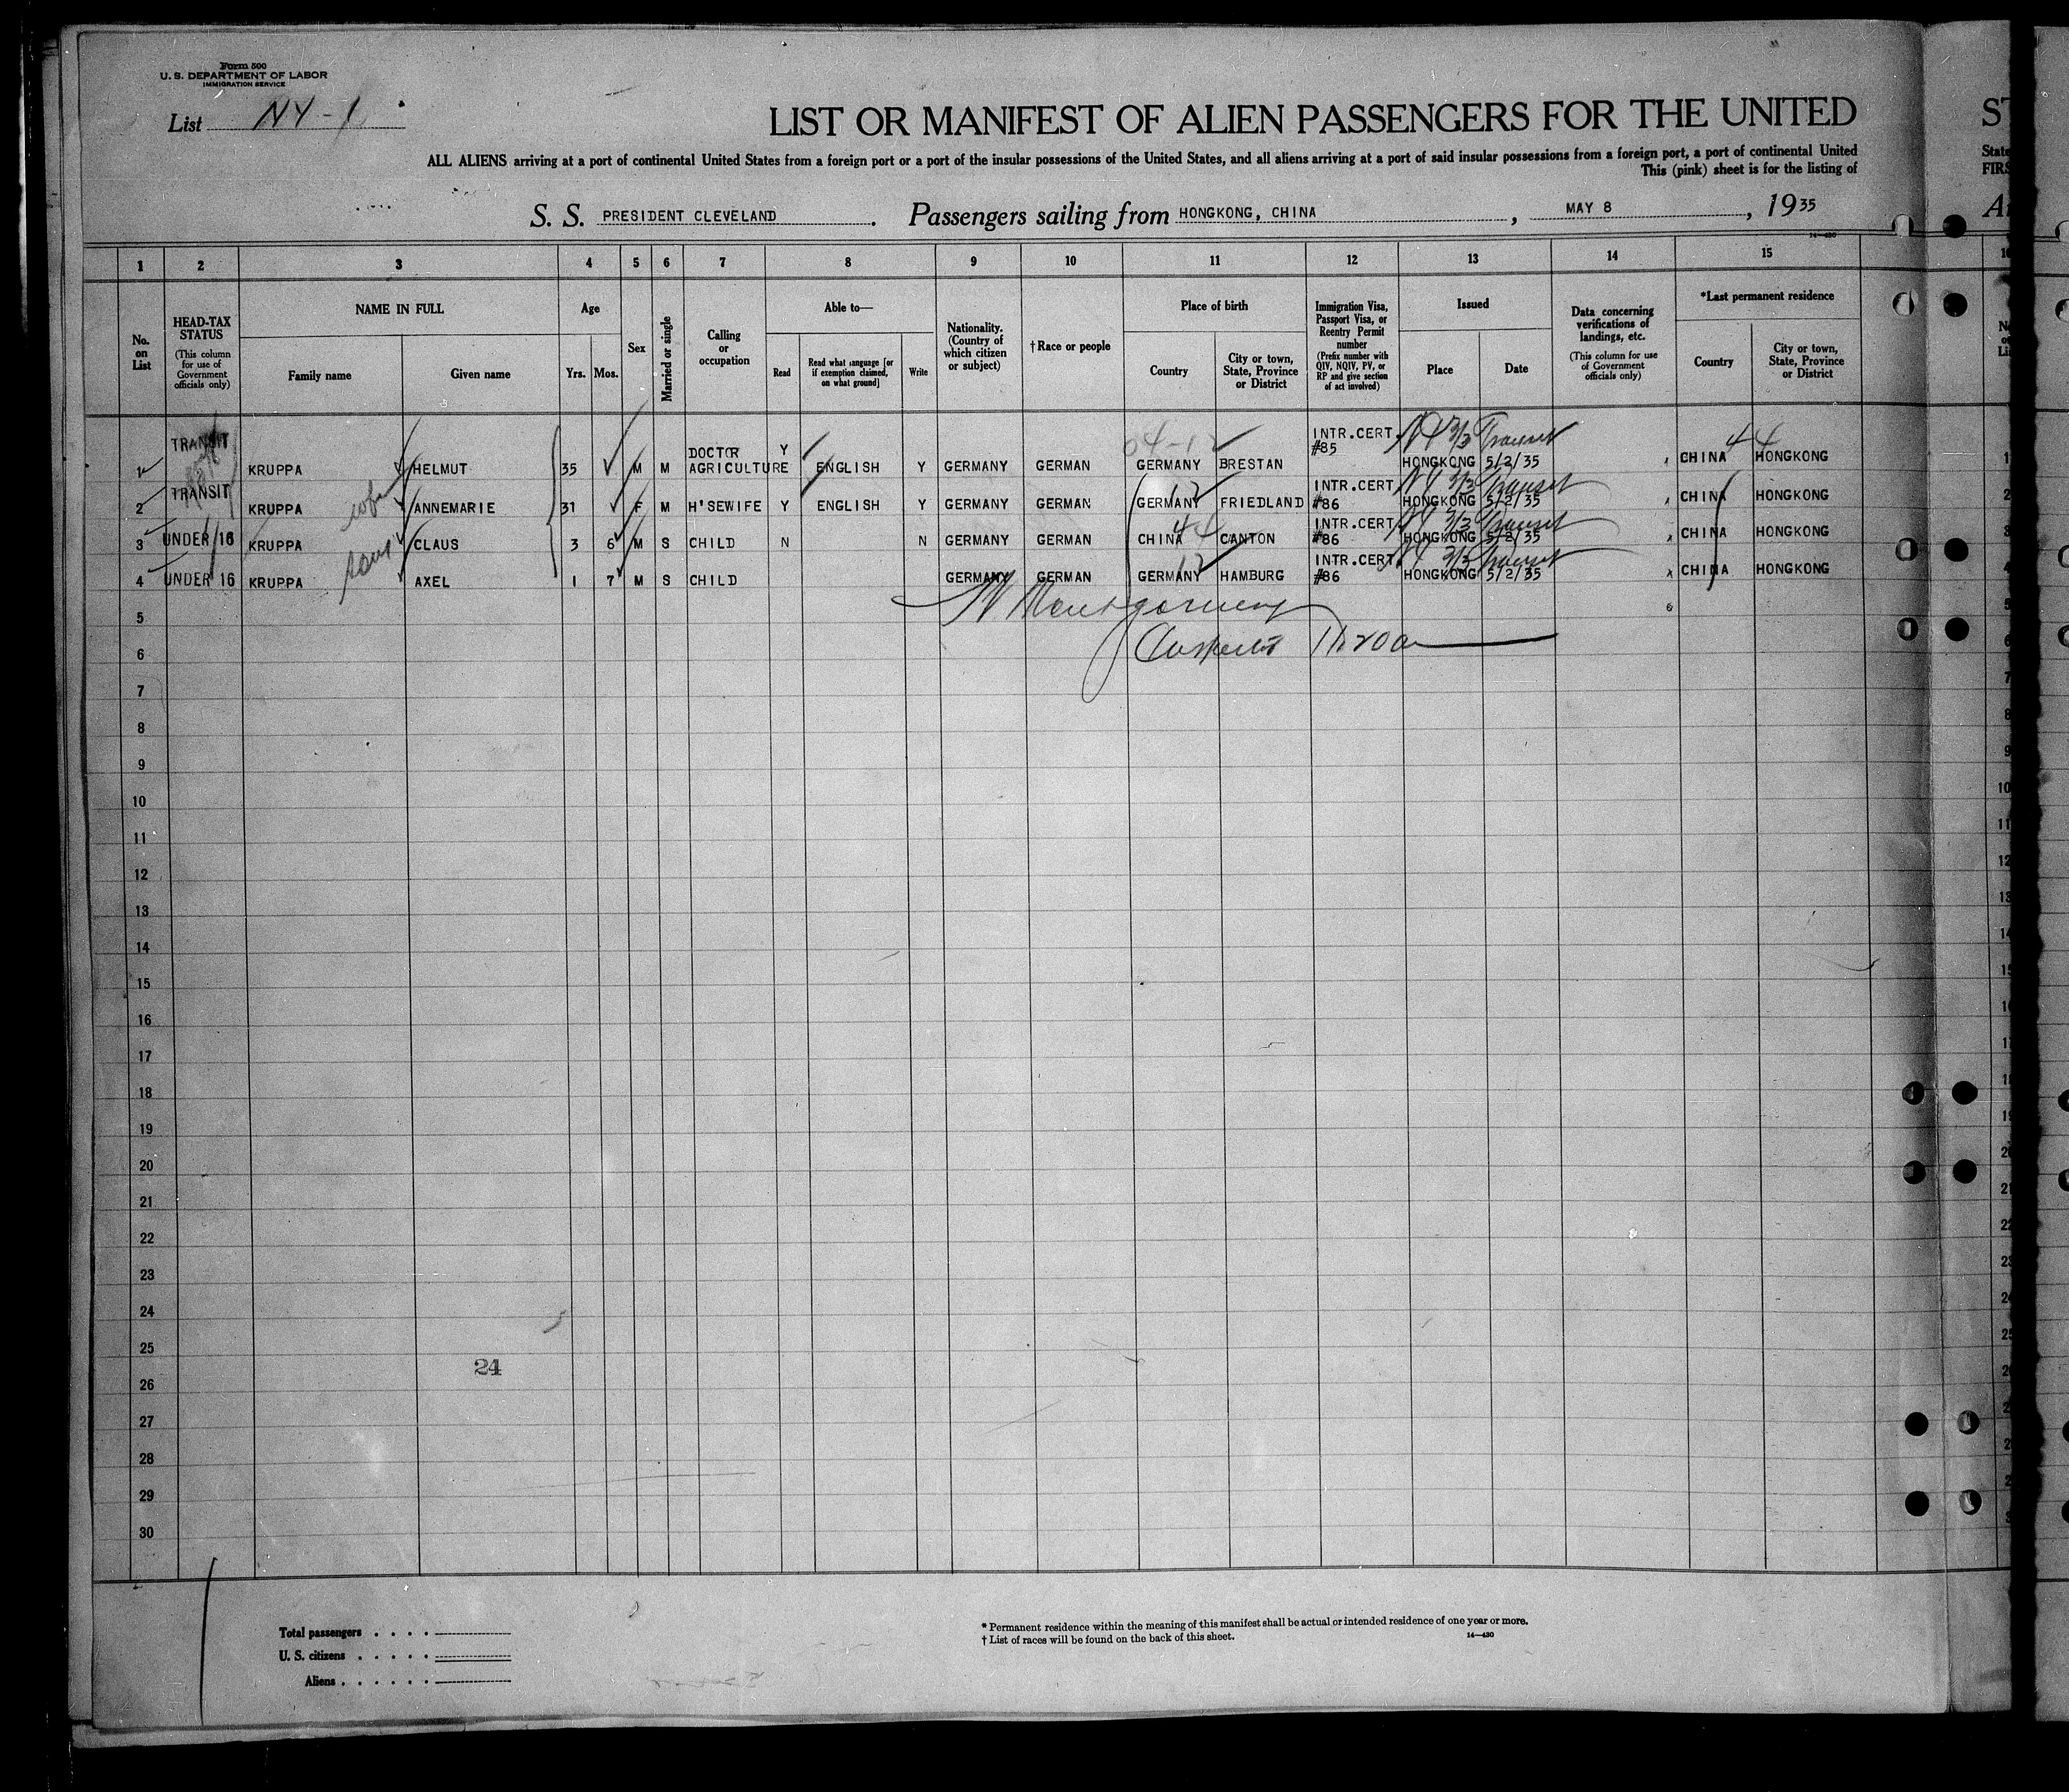 Form 500
U. S. DEPARTMENT OF LABOR
IMMIGRATION SERVICE
List NY-1
LIST OR MANIFEST OF ALIEN PASSENGERS FOR THE UNITED
ST
ALL ALIENS arriving at a port of continental United States from a foreign port or a port of the insular possessions of the United States, and all aliens arriving at a port of said insular possessions from a foreign port, a port of continental United
State
This (pink) sheet is for the listing of
FIRS
S. S. PRESIDENT CLEVELAND. Passengers sailing from HONGKONG, CHINA, MAY 8, 1935
14-430
1 2 3 4 5 6 7 8 9 10 11 12 13 14 15
No. on List
HEAD-TAX STATUS
(This column for use of Government officials only)
NAME IN FULL
Family name
Given name
Age
Yrs. Mos.
Sex
Married or single
Calling or occupation
Able to—
Read
Read what language [or if exemption claimed, on what ground]
Write
Nationality. (Country of which citizen or subject)
† Race or people
Place of birth
Country
City or town, State, Province or District
Immigration Visa, Passport Visa, or Reentry Permit number
(Prefix number with QIV, NQIV, PV, or RP and give section of act involved)
Issued
Place
Date
Data concerning verifications of landings, etc.
(This column for use of Government officials only)
*Last permanent residence
Country
City or town, State, Province or District
1 TRANSIT KRUPPA HELMUT 35 M M DOCTOR AGRICULTURE Y ENGLISH Y GERMANY GERMAN 04-12 GERMANY BRESTAN INTR.CERT #85 NY 3/3 Transit HONGKONG 5/2/35 44 CHINA HONGKONG
2 TRANSIT KRUPPA wife ANNEMARIE 31 F M H'SEWIFE Y ENGLISH Y GERMANY GERMAN 12 GERMANY FRIEDLAND INTR.CERT #86 NY 3/3 Transit HONGKONG 5/2/35 CHINA HONGKONG
3 UNDER 16 KRUPPA sons CLAUS 3 6 M S CHILD N N GERMANY GERMAN 44 CHINA CANTON INTR.CERT #86 NY 3/3 Transit HONGKONG 5/2/35 CHINA HONGKONG
4 UNDER 16 KRUPPA AXEL 1 7 M S CHILD GERMANY GERMAN 12 GERMANY HAMBURG INTR.CERT #86 NY 3/3 Transit HONGKONG 5/2/35 CHINA HONGKONG
5 Montgomery
6
7
8
9
10
11
12
13
14
15
16
17
18
19
20
21
22
23
24
25
24
26
27
28
29
30
Total passengers . . . .
U. S. citizens . . . . .
Aliens . . . . . .
* Permanent residence within the meaning of this manifest shall be actual or intended residence of one year or more.
† List of races will be found on the back of this sheet.
14-430